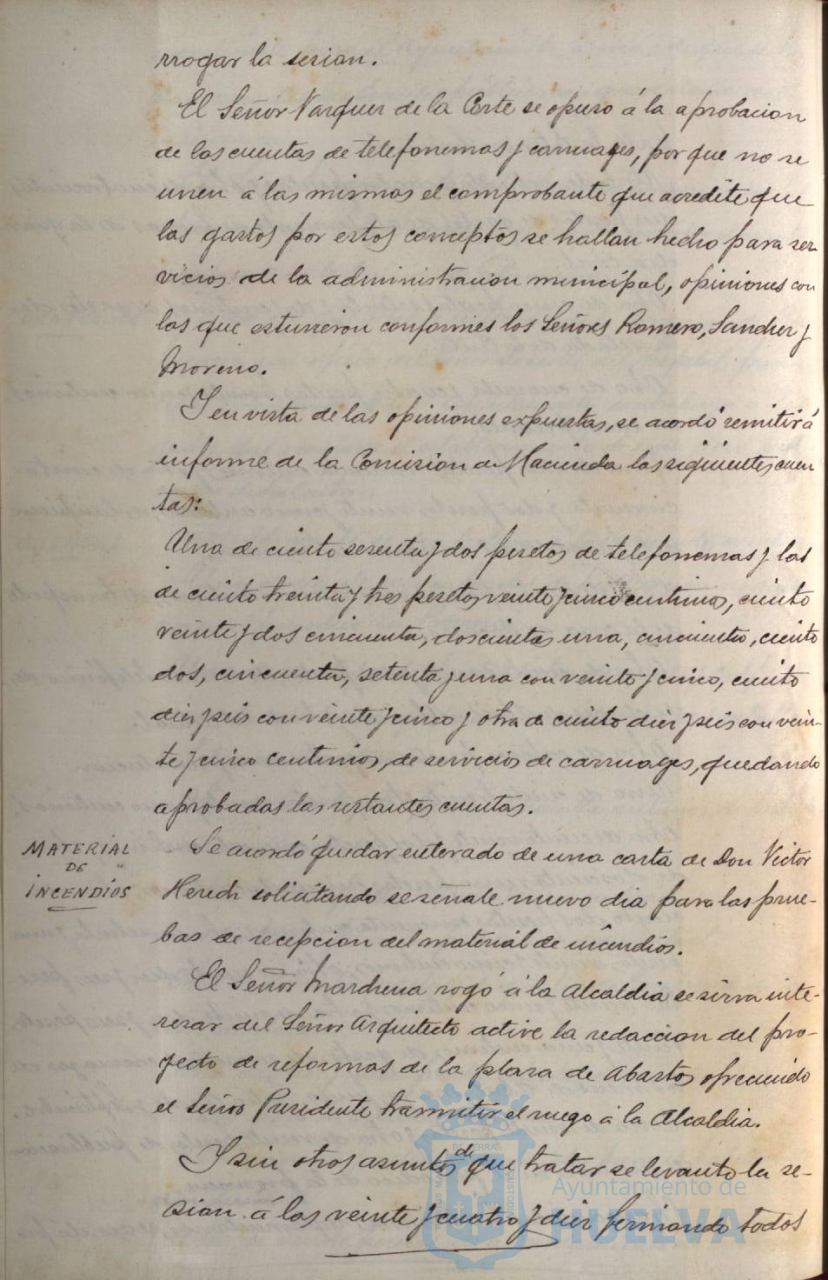 rrogar la sesion.
El Señor Vazquez de la Corte se opuso á la aprobacion
de las cuentas de telefonemas y carruages, por que no se
unen á las mismas el comprobante que acredite que
los gastos por estos conceptos se hallan hecho para ser-
vicios de la administracion municipal, opiniones con
las que estuvieron conformes los Señores Romero, Sanchez y
Moreno.
Y en vista de las opiniones expuestas, se acordó remitir á
informe de la Comision de Hacienda las siguientes cuen
tas:
Una de ciento sesenta y dos pesetas de telefonemas y las
de ciento treinta y tres pesetas veinte y cinco centimos, ciento
veinte y dos cincuenta, doscientas una, cincuenta, ciento
dos, cincuenta, setenta y una con veinte y cinco, ciento
diez y seis con veinte y cinco y otra de ciento diez y seis con vein-
te y cinco centimos, de servicios de carruages, quedando
aprobadas las restantes cuentas.
MATERIAL
DE
INCENDIOS
Se acordó quedar enterado de una carta de Don Victor
solicitando se señale nuevo dia para las prue-
bas de recepcion del material de incendios.
El Señor Marchena rogó á la Alcaldia se sirva inte-
resar del Señor Arquitecto active la redaccion del pro-
yecto de reformas de la plaza de Abastos ofreciendo
el Señor Presidente trasmitir el ruego á la Alcaldia.
Y sin otros asuntos de que tratar se levantó la se-
sion á las veinte y cuatro y diez firmando todos
Ayuntamiento de
HUELVA